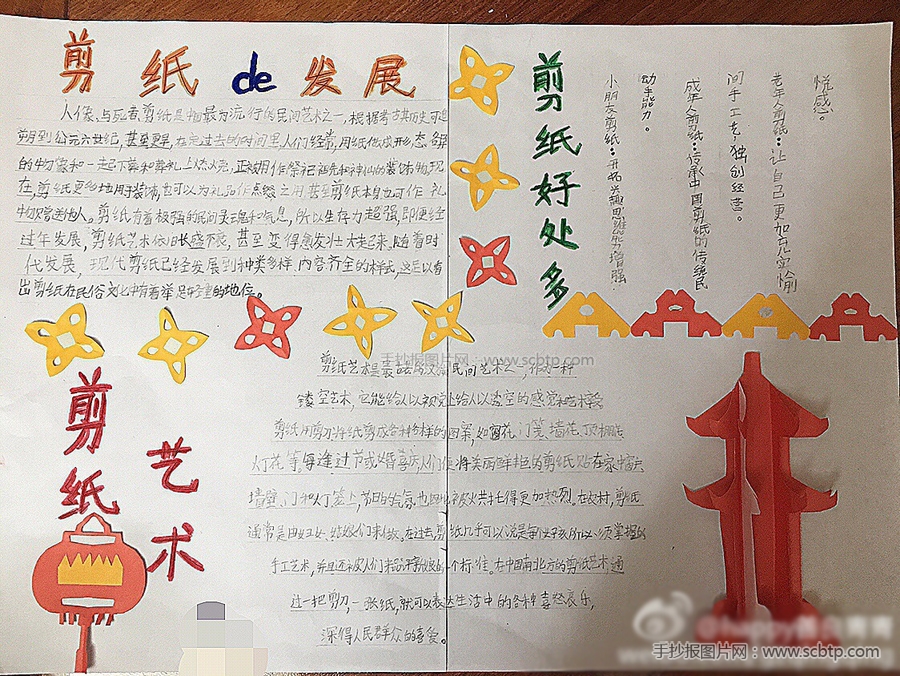 剪纸de发展
人像、与死者剪纸是物最为流行的民间艺术之一,根据考古其历史可追
朔到公元六世纪,甚至更早,在完过去的时间里人们经常用纸做成形态
的物象和一起下葬和葬礼上燃烧,
在,剪纸更多地用于装饰,也可以为礼品作点缀之用甚至剪纸本身也可作礼
物次赠送他人。剪纸有着极强的民间灵魂和气息,所以生存力超强,即便经
过年发展,剪纸艺术依旧长盛不衰,甚至变得愈发壮大起来,随着时
代发展,现代剪纸已经发展到种类多样,内容齐全的样式,这足以看
出剪纸在民俗文化中有着举足轻重的地位。
剪纸好处多
小朋友剪纸:开拓兴趣思维与增强
动手能力。
成年人剪纸:传承中国剪纸的传统民
间手工艺,独创经营。
老年人剪纸:让自己更加充实愉
悦感。
剪纸
艺术
剪纸艺术是最古老汉族民间艺术之一,作为一种
镂空艺术,它能给人以视觉上给人以透空的感觉和艺术享受
剪纸用剪刀将纸剪成各种各样的图案,如窗花、门笺、墙花、顶棚
灯花等。每逢过节或婚喜庆人们便将美丽鲜艳的剪纸贴在家中窗
墙壁、门和灯笼上,节日的气氛也因此被烘托得更加热烈。在农村,剪纸
通常是由妇女、姑娘们来做。在过去,剪纸几乎可以说是每个女孩所必须掌握的
手工艺术,并且还被人们来品评新娘的一个标准。在中国南北方的剪纸艺术通
过一把剪刀,一张纸,就可以表达生活中的各种喜怒哀乐,
深得人民群众的喜爱。
手抄报图片网:www.scbtp.com
手抄报图片网:www.scbtp.com